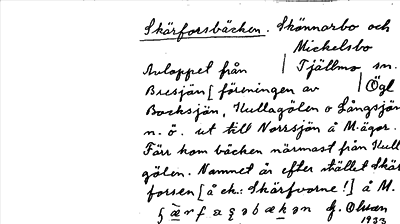 Skärforsbäcken. Skönnarbo och
Mickelsbo
Avloppet från | Tjällmo sn.
Bresjön [föreningen av | Ögl
Bocksjön, Kullagölen o Långsjön
n. ö. ut till Norrsjön å M-ägor.
Förr kom bäcken närmast från Kull
gölen. Namnet är efter stället Skär
forsen [å ek.: Skärfvorne!] å M.
1933